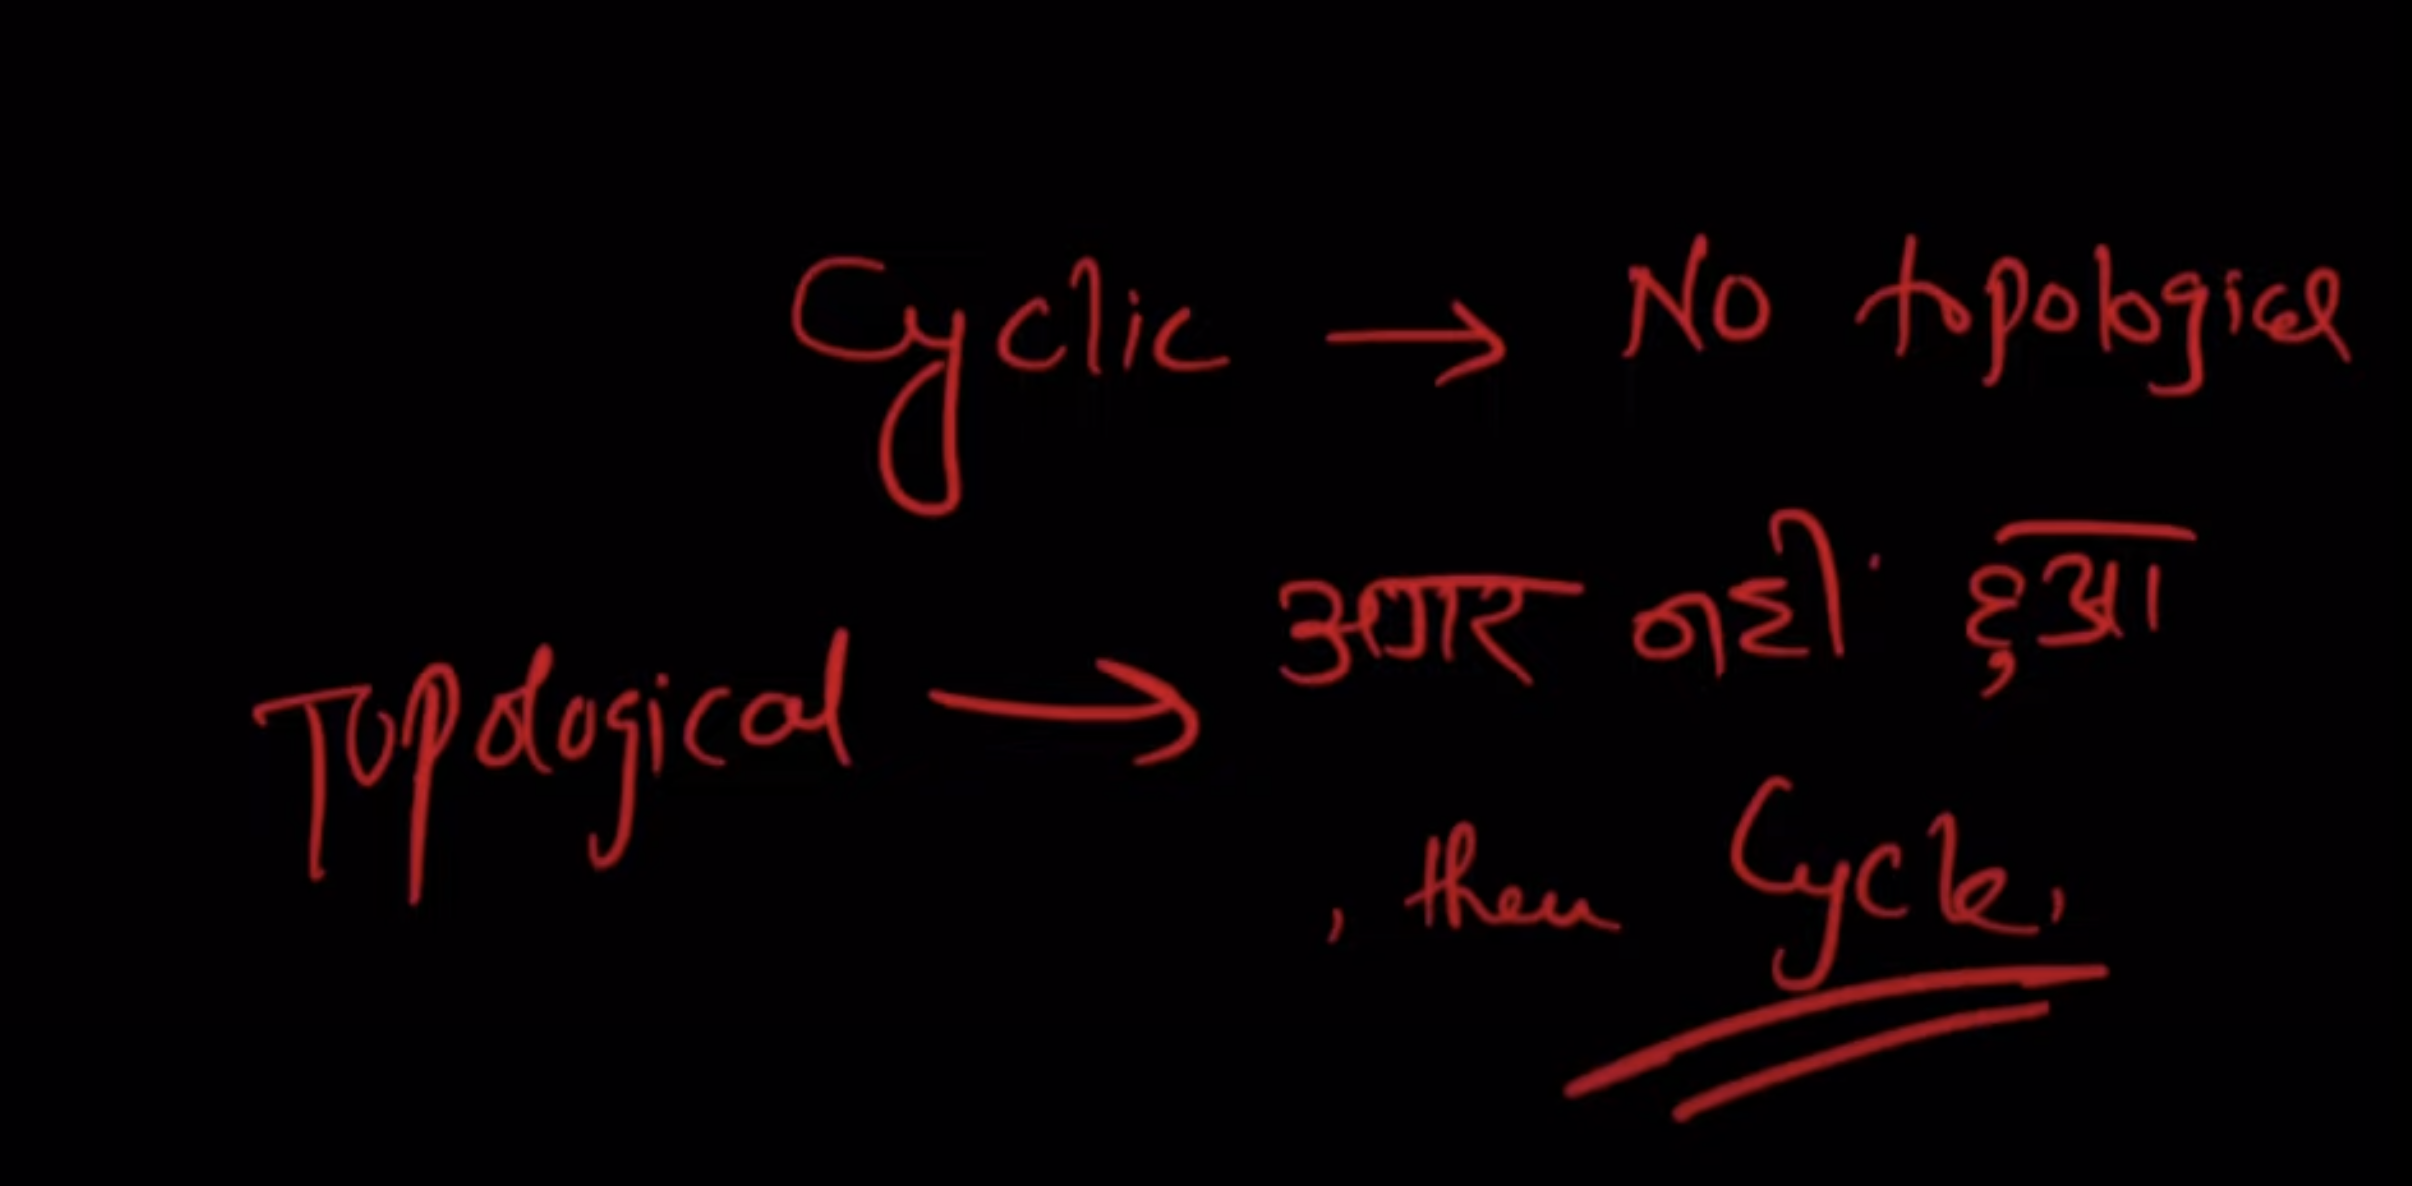 Cyclic → No topological
Topological → अगर नही हुआ
, then Cycle,